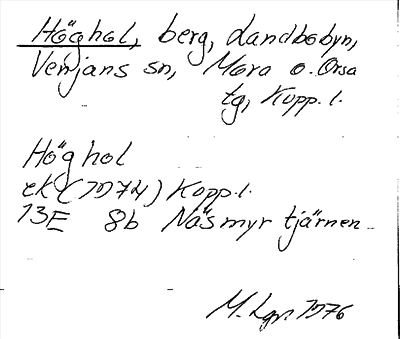 Höghol, berg, Landbobyn,
Venjans sn, Mora o. Orsa
tg, Kopp. l.
Höghol
ek (1974) Kopp. l.
13E 8b Näsmyrtjärnen
M. Lgr. 1976